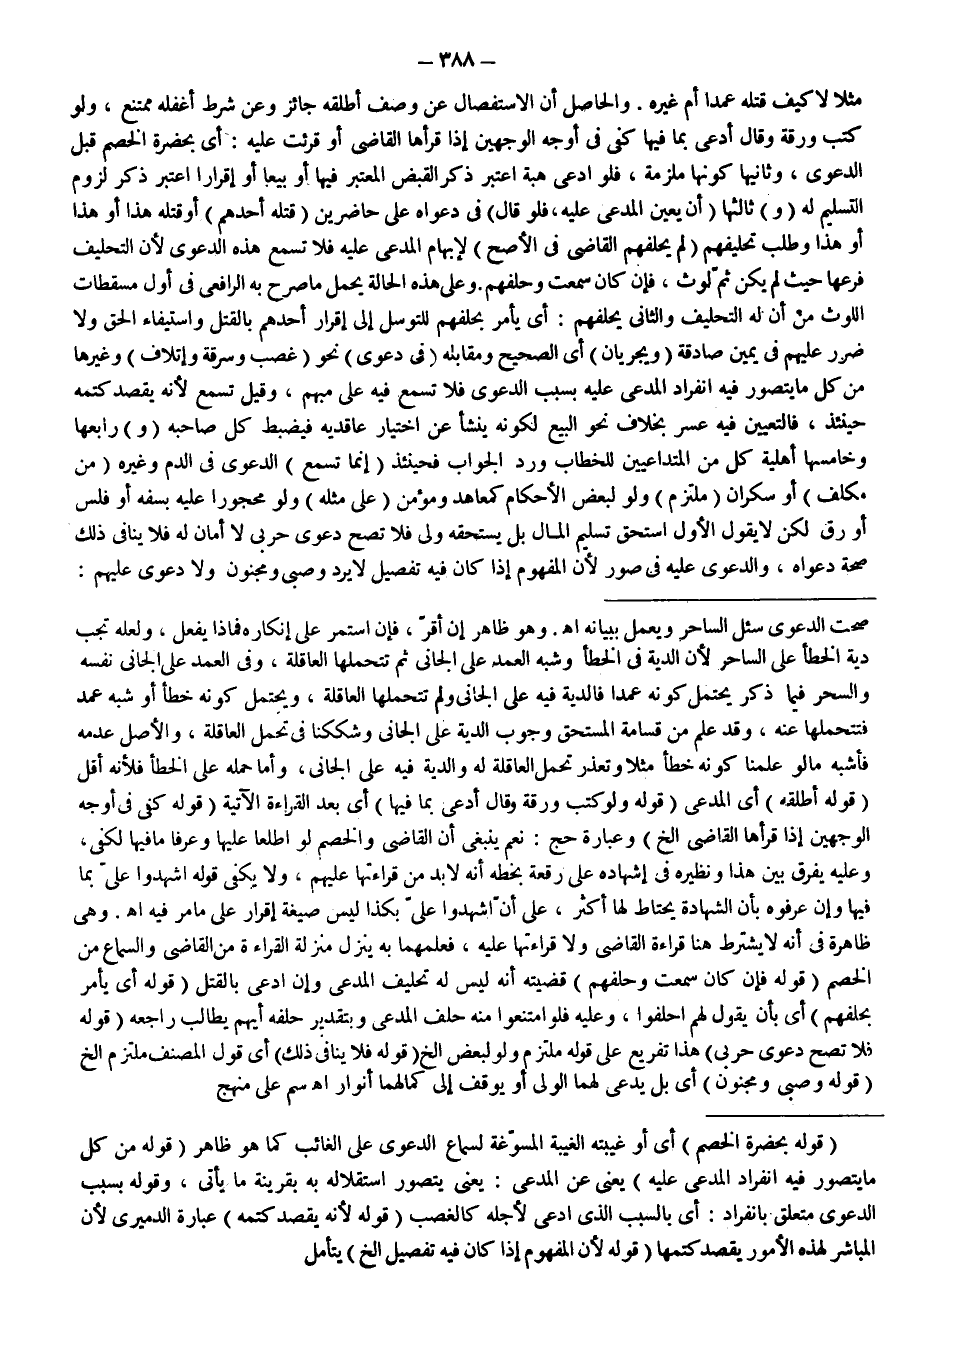 – ٣٨٨ –
مثلا لا كيف قتله عمدا أم غيره . والحاصل أن الاستفصال عن وصف أطلقه جائز وعن شرط أغفله ممتنع ، ولو
كتب ورقة وقال أدعى بما فيها كفى فى أوجه الوجهين إذا قرأها القاضى أو قرئت عليه : أى بحضرة الخصم قبل
الدعوى ، وثانيها كونها ملزمة ، فلو ادعى هبة اعتبر ذكر القبض المعتبر فيها أو بيعا أو إقرارا اعتبر ذكر لزوم
التسليم له ( و ) ثالثها ( أن يعين المدعى عليه ، فلو قال ) فى دعواه على حاضرين ( قتله أحدهم ) أو قتله هذا أو هذا
أو هذا وطلب تحليفهم ( لم يحلفهم القاضى فى الأصح ) لإبهام المدعى عليه فلا تسمع هذه الدعوى لأن التحليف
فرعها حيث لم يكن ثمّ لوث ، فإن كان سمعت وحلفهم . وعلى هذه الحالة يحمل ماصرح به الرافعى فى أول مسقطات
اللوث من أن له التحليف والثانى يحلفهم : أى يأمر بحلفهم للتوسل إلى إقرار أحدهم بالقتل واستيفاء الحق ولا
ضرر عليهم فى يمين صادقة ( ويجريان ) أى الصحيح ومقابله ( فى دعوى ) نحو ( غصب وسرقة وإتلاف ) وغيرها
من كل مايتصور فيه انفراد المدعى عليه بسبب الدعوى فلا تسمع فيه على مبهم ، وقيل تسمع لأنه يقصد كتمه
حينئذ ، فالتعيين فيه عسر بخلاف نحو البيع لكونه ينشأ عن اختيار عاقديه فيضبط كل صاحبه ( و ) رابعها
وخامسها أهلية كل من المتداعيين للخطاب ورد الجواب فحينئذ ( إنما تسمع ) الدعوى فى الدم وغيره ( من
مكلف ) أو سكران ( ملتزم ) ولو لبعض الأحكام كمعاهد ومؤمن ( على مثله ) ولو محجورا عليه بسفه أو فلس
أو رق لكن لايقول الأول استحق تسليم المال بل يستحقه ولى فلا تصح دعوى حربى لا أمان له فلا ينافى ذلك
صحة دعواه ، والدعوى عليه فى صور لأن المفهوم إذا كان فيه تفصيل لايرد وصبى ومجنون ولا دعوى عليهم :
صحت الدعوى سئل الساحر ويعمل ببيانه اه . وهو ظاهر إن أقرّ ، فإن استمر على إنكاره فماذا يفعل ، ولعله تجب
دية الخطأ على الساحر لأن الدية فى الخطأ وشبه العمد على الجانى ثم تتحملها العاقلة ، وفى العمد على الجانى نفسه
والسحر فيما ذكر يحتمل كونه عمدا فالدية فيه على الجانى ولم تتحملها العاقلة ، ويحتمل كونه خطأ أو شبه عمد
فتتحملها عنه ، وقد علم من قسامة المستحق وجوب الدية على الجانى وشككنا فى تحمل العاقلة ، والأصل عدمه
فأشبه مالو علمنا كونه خطأ مثلا وتعذر تحمل العاقلة له والدية فيه على الجانى ، وأما حمله على الخطأ فلأنه أقل
( قوله أطلقه ) أى المدعى ( قوله ولو كتب ورقة وقال أدعى بما فيها ) أى بعد القراءة الآتية ( قوله كفى فى أوجه
الوجهين إذا قرأها القاضى الخ ) وعبارة حج : نعم ينبغى أن القاضى والخصم لو اطلعا عليها وعرفا مافيها لكفى ،
وعليه يفرق بين هذا ونظيره فى إشهاده على رقعة بخطه أنه لابد من قراءتها عليهم ، ولا يكفى قوله اشهدوا علىّ بما
فيها وإن عرفوه بأن الشهادة يحتاط لها أكثر ، على أن اشهدوا علىّ بكذا ليس صيغة إقرار على مامر فيه اه . وهى
ظاهرة فى أنه لايشترط هنا قراءة القاضى ولا قراءتها عليه ، فعلمهما به ينزل منزلة القراءة من القاضى والسماع من
الخصم ( قوله فإن كان سمعت وحلفهم ) قضيته أنه ليس له تحليف المدعى وإن ادعى بالقتل ( قوله أى يأمر
بحلفهم ) أى بأن يقول لهم احلفوا ، وعليه فلو امتنعوا منه حلف المدعى وبتقدير حلفه أيهم يطالب راجعه ( قوله
فلا تصح دعوى حربى ) هذا تفريع على قوله ملتزم ولو لبعض الخ ( قوله فلا ينافى ذلك ) أى قول المصنف ملتزم الخ
( قوله وصبى ومجنون ) أى بل يدعى لهما الولى أو يوقف إلى كمالهما أنوار اه سم على منهج
( قوله بحضرة الخصم ) أى أو غيبته الغيبة المسوّغة لسماع الدعوى على الغائب كما هو ظاهر ( قوله من كل
مايتصور فيه انفراد المدعى عليه ) يعنى عن المدعى : يعنى يتصور استقلاله به بقرينة ما يأتى ، وقوله بسبب
الدعوى متعلق بانفراد : أى بالسبب الذى ادعى لأجله كالغصب ( قوله لأنه يقصد كتمه ) عبارة الدميرى لأن
المباشر لهذه الأمور يقصد كتمها ( قوله لأن المفهوم إذا كان فيه تفصيل الخ ) يتأمل